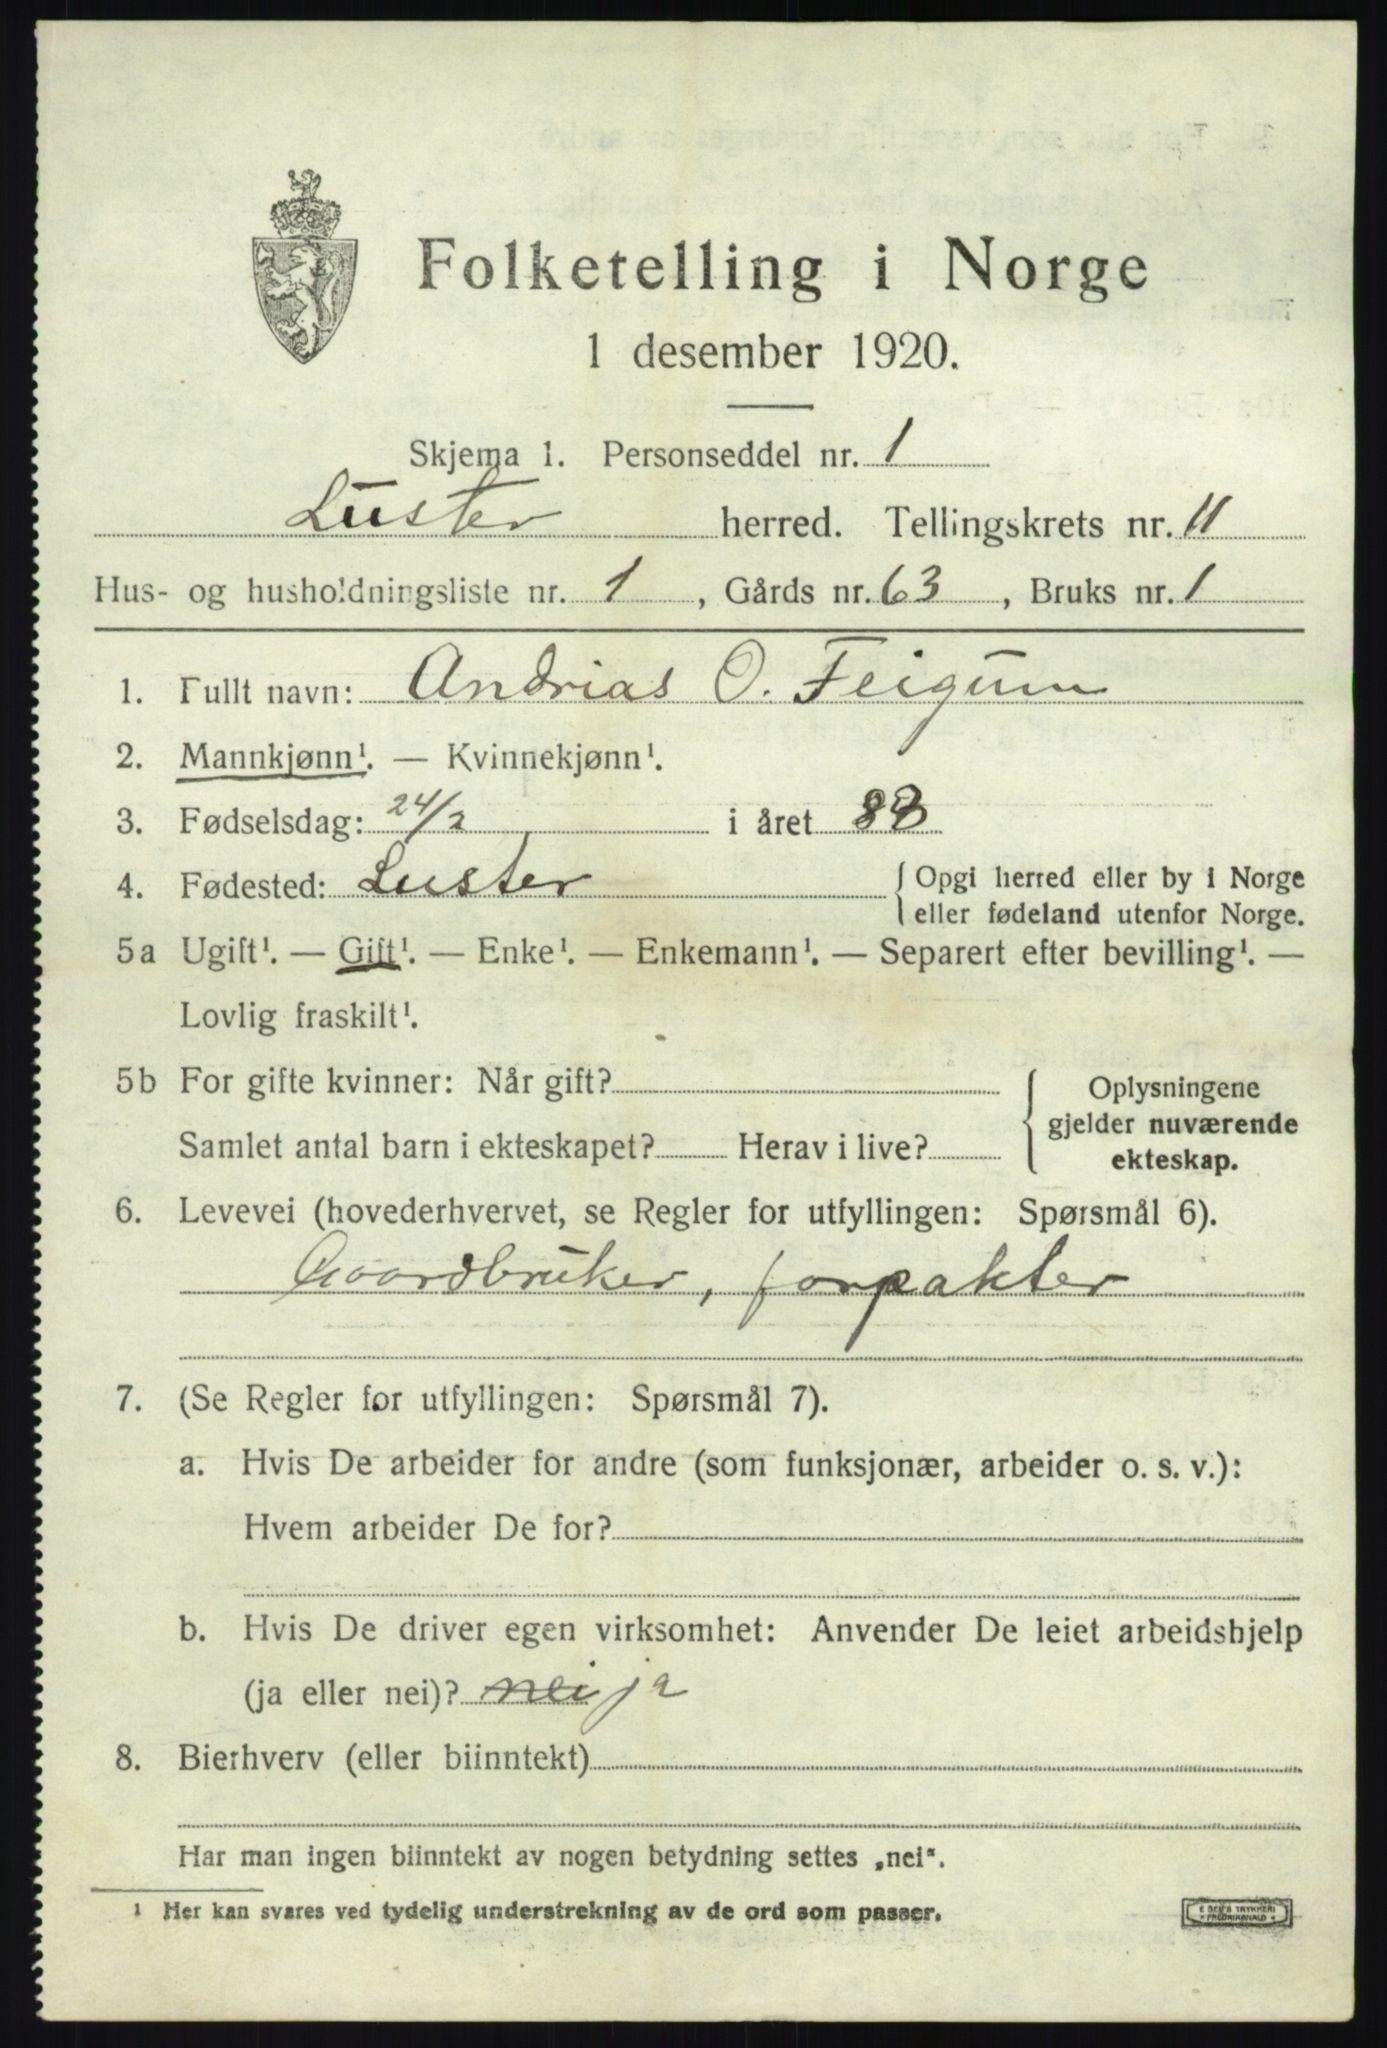 Folketelling i Norge
1 desember 1920.
Skjema 1. Personseddel nr. 1
Luster herred. Tellingskrets nr. 11
Hus- og husholdningsliste nr. 1, Gårds nr. 63, Bruks nr. 1
1. Fullt navn: Andrias O. Feigum
2. Mannkjønn¹. — Kvinnekjønn¹.
3. Fødselsdag: 24/2 i året
4. Fødested: Luster { Opgi herred eller by i Norge
eller fødeland utenfor Norge.
5a Ugift¹. — Gift¹. — Enke¹. — Enkemann¹. — Separert efter bevilling¹. —
Lovlig fraskilt¹.
5b For gifte kvinner: Når gift?
Samlet antal barn i ekteskapet? Herav i live?
{ Oplysningene
gjelder nuværende
ekteskap.
6. Levevei (hovederhvervet, se Regler for utfyllingen: Spørsmål 6).
Gaardbruker, forpakter
7. (Se Regler for utfyllingen: Spørsmål 7).
a. Hvis De arbeider for andre (som funksjonær, arbeider o. s. v.):
Hvem arbeider De for?
b. Hvis De driver egen virksomhet: Anvender De leiet arbeidshjelp
(ja eller nei)? nei ja
8. Bierhverv (eller biinntekt)
Har man ingen biinntekt av nogen betydning settes „nei“.
¹ Her kan svares ved tydelig understrekning av de ord som passer.